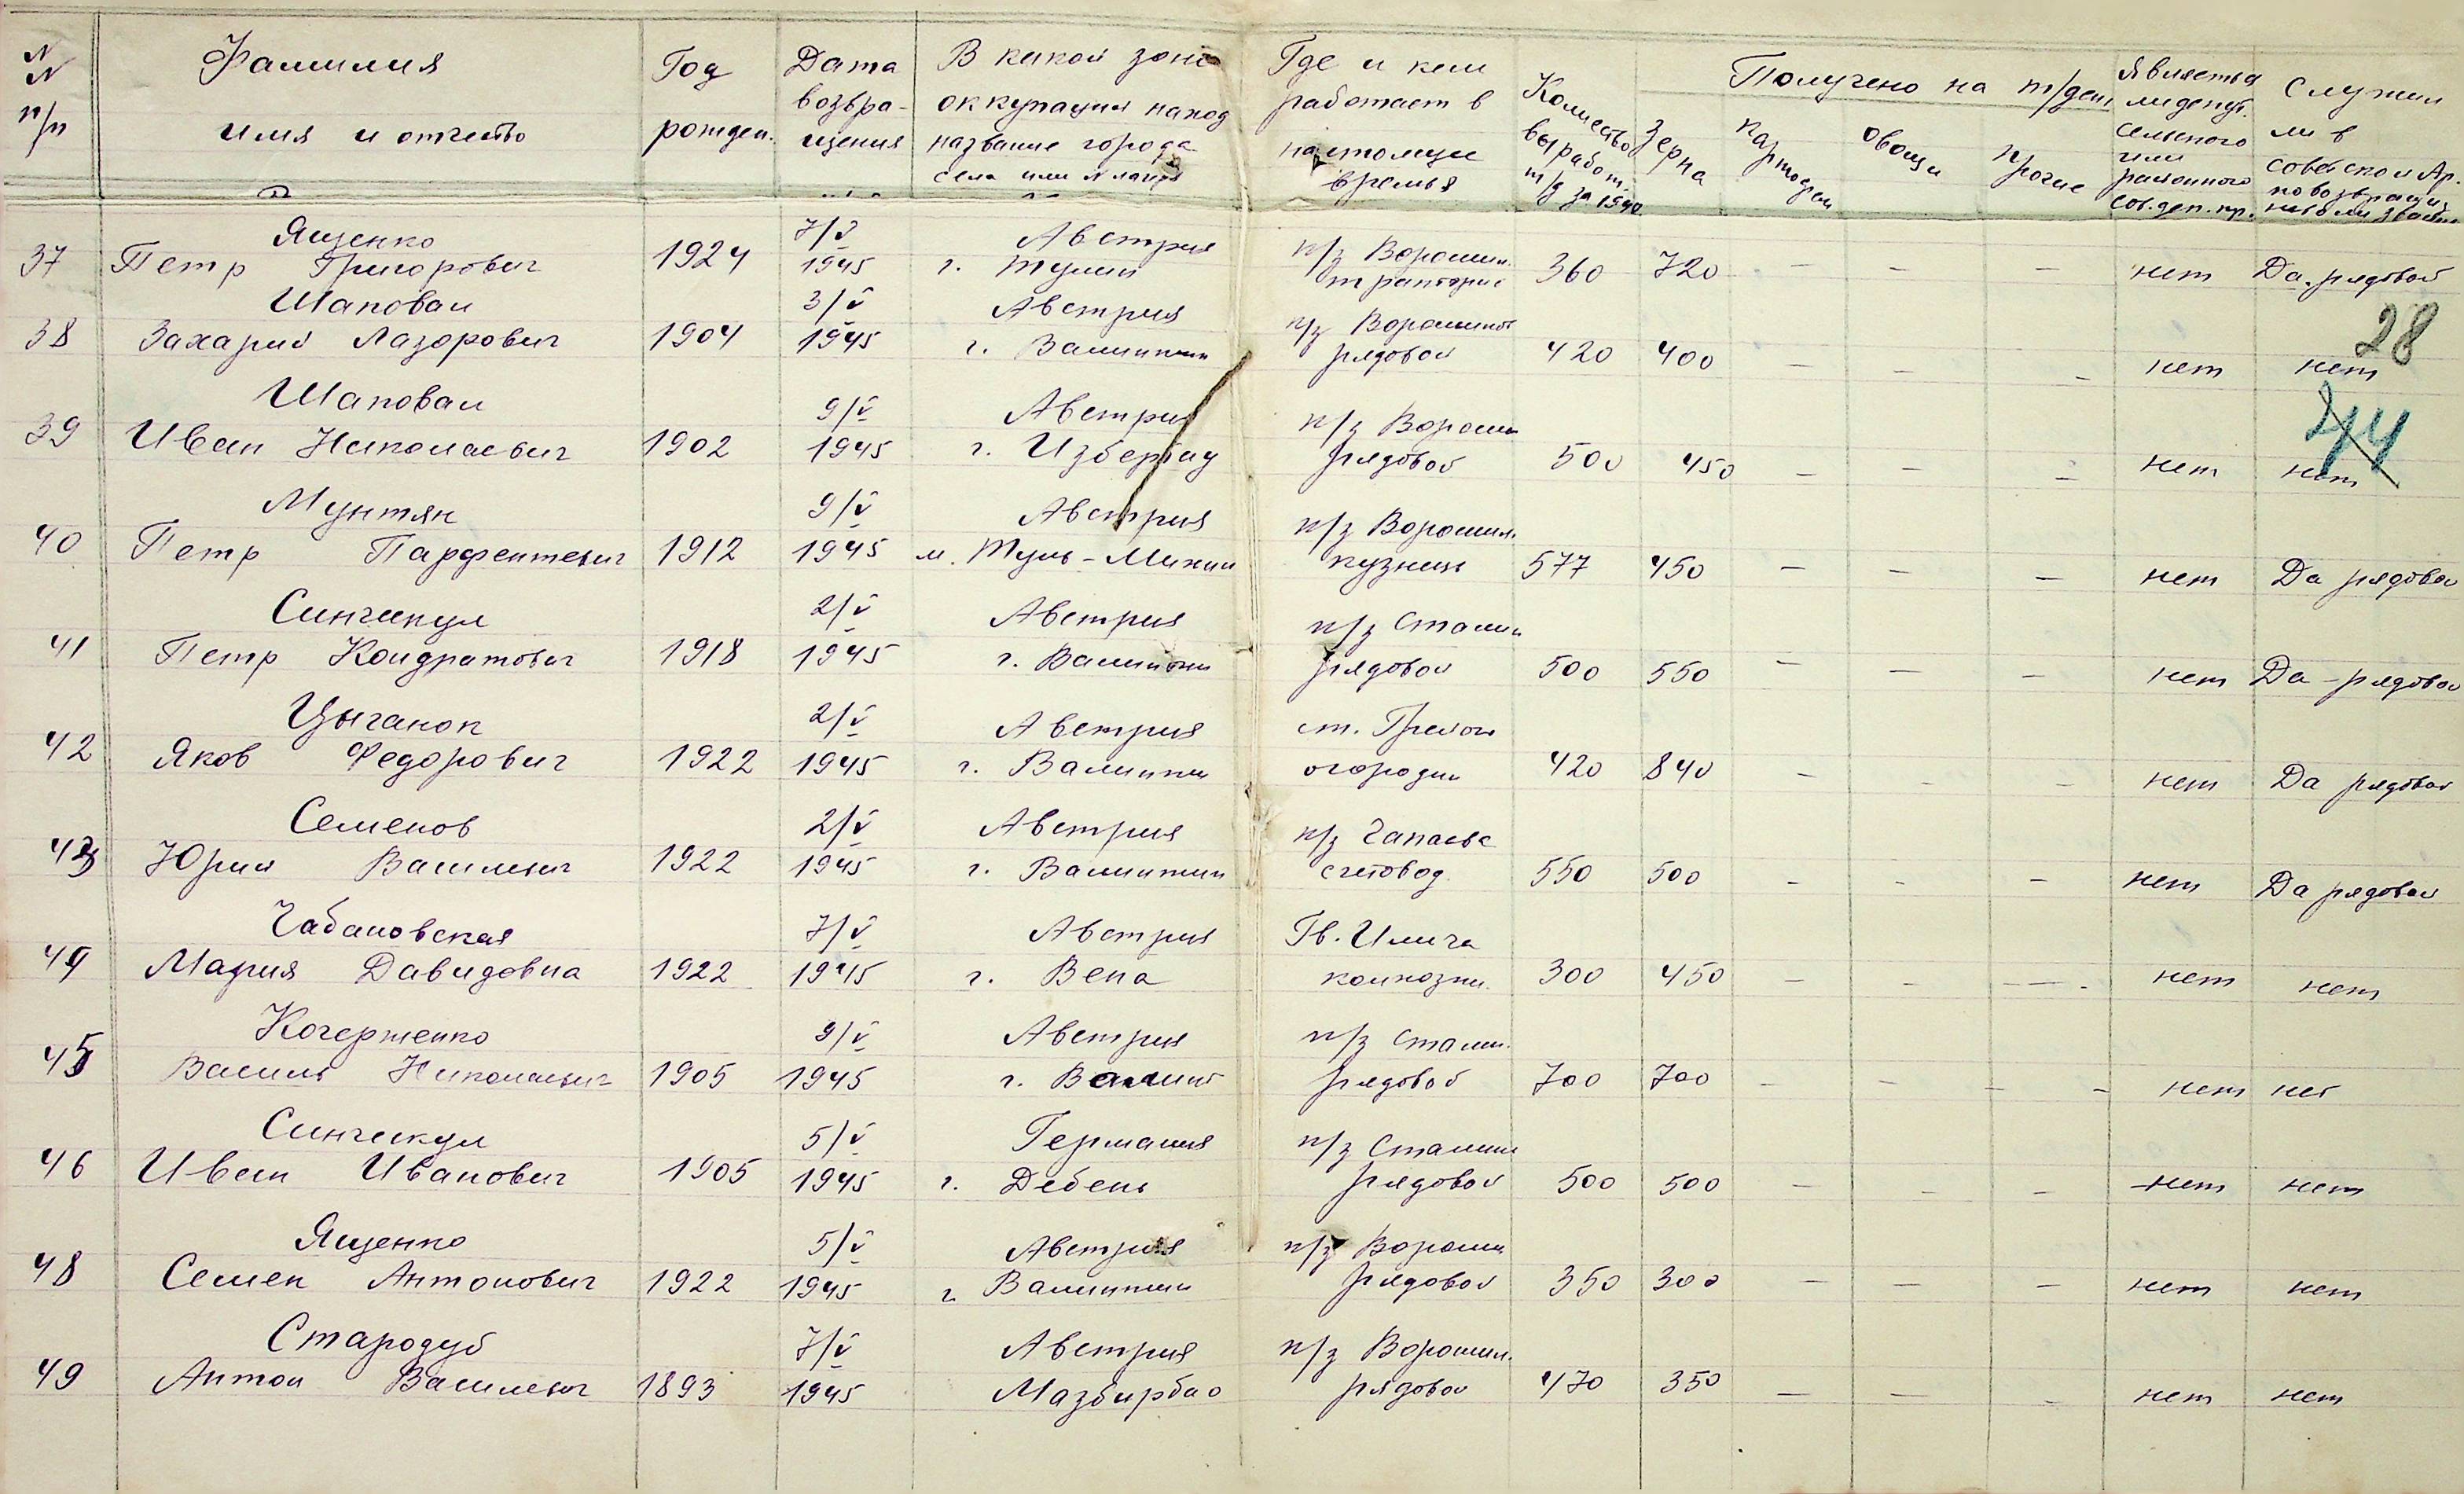 N N п/п | Фамилия имя и отчество | Год рожден. | Дата возвра-щения | В какой зоне оккупации наход название города села или N лагер | Где и кем работает в настоящее время | Количество выработ. т/д за 194 | Получено на т/ден | Является ли депут. сельского или районного сов. деп. тр. | Служил ли в советской Ар.
Зерна | картофель | овощи | прочие
Ященко | 7/V | Австрия | к/з Ворошил.
37 | Петр Григорович | 1924 | 1945 | г. Тулин | тракторис | 360 | 720 | — | — | — | нет | Да. рядовой
Шаповал | 3/V | Австрия | к/з Ворошилов
38 | Захарий Лазорович | 1904 | 1945 | г. | рядовой | 420 | 400 | — | — | — | нет | нет
28
Шаповал | 9/V | Австрия | к/з Ворошил
39 | Иван Николаевич | 1902 | 1945 | г. Избербау | рядовой | 500 | 450 | — | — | — | нет | нет
44
Мунтян | 9/V | Австрия | к/з Ворошил.
40 | Петр Парфентевич | 1912 | 1945 | м. | кузнец | 577 | 450 | — | — | — | нет | Да рядовой
Синчикул | 2/V | Австрия | к/з Сталин
41 | Петр Кондратович | 1918 | 1945 | г. | рядовой | 500 | 550 | — | — | — | нет | Да - рядовой
Цыганок | 2/V | Австрия | ст.
42 | Яков Федорович | 1922 | 1945 | г. | огородн | 420 | 840 | — | — | — | нет | Да рядовой
Семенов | 2/V | Австрия | к/з Чапаева
43 | Юрий Василевич | 1922 | 1945 | г. | счетовод. | 550 | 500 | — | — | — | нет | Да рядовой
Чабановская | 7/V | Австрия | Илича
44 | Мария Давидовна | 1922 | 1945 | г. Вена | колхозни. | 300 | 450 | — | — | — | нет | нет
Кочерженко | 9/V | Австрия | к/з Сталин.
45 | Василь Николаевич | 1905 | 1945 | г. | рядовой | 700 | 700 | — | — | — | нет | нет
Синчикул | 5/V | Германия | к/з Сталин
46 | Иван Иванович | 1905 | 1945 | г. Дебень | рядовой | 500 | 500 | — | — | — | нет | нет
Ященко | 5/V | Австрия | к/з Ворошил
48 | Семен Антонович | 1922 | 1945 | г. | рядовой | 350 | 300 | — | — | — | нет | нет
Стародуб | 7/V | Австрия | к/з Ворошил.
49 | Антон Василевич | 1893 | 1945 | Мазбирбао | рядовой | 470 | 350 | — | — | — | нет | нет